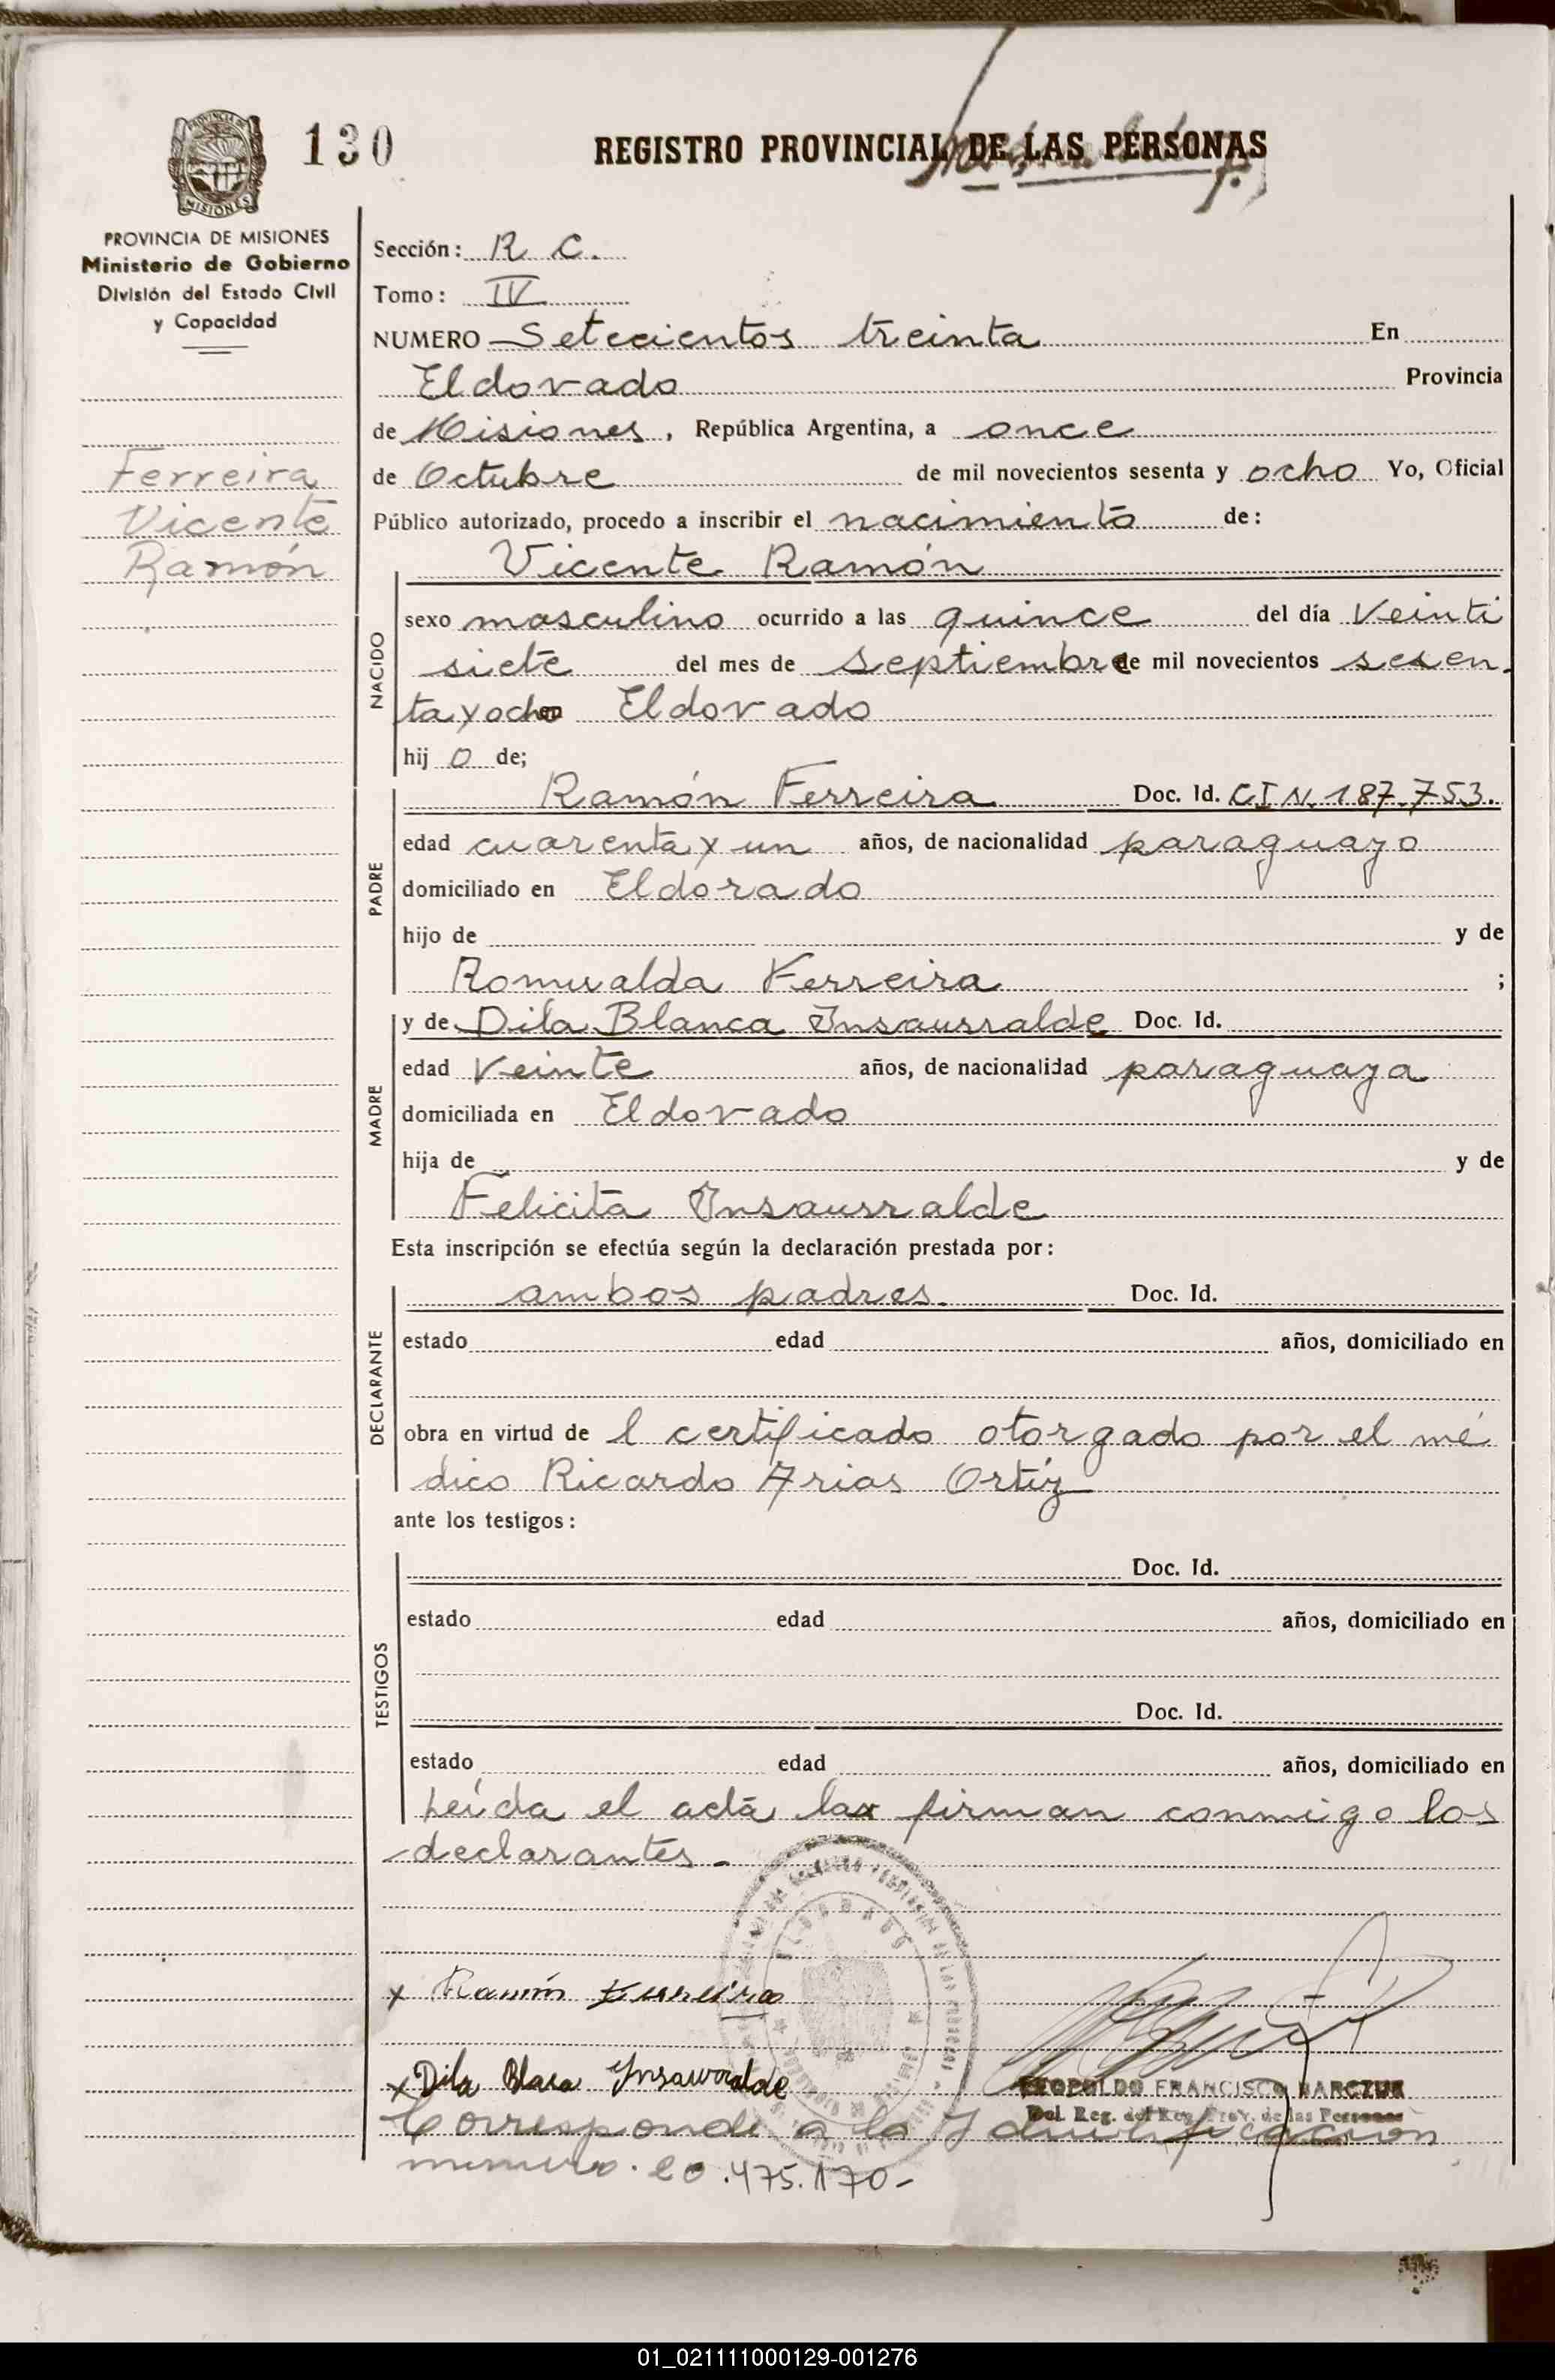 130
REGISTRO PROVINCIAL DE LAS PERSONAS
PROVINCIA DE
MISIONES
PROVINCIA DE MISIONES
Ministerio de Gobierno
División del Estado Civil
y Capacidad
Ferreira
Vicente
Ramón
Sección: R C.
Tomo: IV
NUMERO Setecientos treinta En
Eldorado Provincia
de Misiones, República Argentina, a once
de Octubre de mil novecientos sesenta y ocho Yo, Oficial
Público autorizado, procedo a inscribir el nacimiento de:
Vicente Ramón
NACIDO
sexo masculino ocurrido a las quince del día Veinti
siete del mes de septiembre de mil novecientos sesen
ta y ocho Eldorado
hij o de;
PADRE
Ramón Ferreira Doc. Id. C I N. 187.753.
edad cuarenta y un años, de nacionalidad paraguayo
domiciliado en Eldorado
hijo de y de
Romualda Ferreira ;
MADRE
y de Dila Blanca Insaurralde Doc. Id.
edad Veinte años, de nacionalidad paraguaya
domiciliada en Eldorado
hija de y de
Felicita Insaurralde
Esta inscripción se efectúa según la declaración prestada por:
DECLARANTE
ambos padres. Doc. Id.
estado edad años, domiciliado en
obra en virtud de l certificado otorgado por el mé
dico Ricardo Arias Ortíz
ante los testigos:
TESTIGOS
Doc. Id.
estado edad años, domiciliado en
Doc. Id.
estado edad años, domiciliado en
Leída el acta, la firman conmigo los
declarantes.-
ELDORADO
x Ramón Ferreira
x Dila Blaca Ynsaurralde
LEOPOLDO FRANCISCO
Del. Reg. del Reg. Prov. de las Personas
Corresponde a la Identificacion
numero. 20.475.170-
01_021111000129-001276